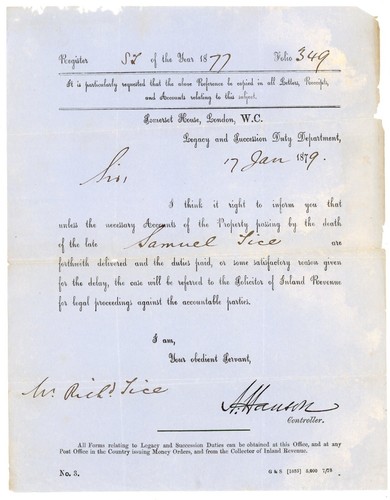 Register SI of the Year 1877 Folio 349
It is particularly requested that the above Reference be copied in all Letters, Receipts,
and Accounts relating to this subject.
Somerset House, London, W.C.
Legacy and Succession Duty Department,
17 Jan 1879.
Sir,
I think it right to inform you that
unless the necessary Accounts of the Property passing by the death
of the late Samuel Tice are
forthwith delivered and the duties paid, or some satisfactory reason given
for the delay, the case will be referred to the Solicitor of Inland Revenue
for legal proceedings against the accountable parties.
I am,
Your obedient Servant,
Mr. Richd. Tice
A. Hanson
Controller.
All Forms relating to Legacy and Succession Duties can be obtained at this Office, and at any
Post Office in the Country issuing Money Orders, and from the Collector of Inland Revenue.
No. 3. G & S [1059] 3,000 7/78